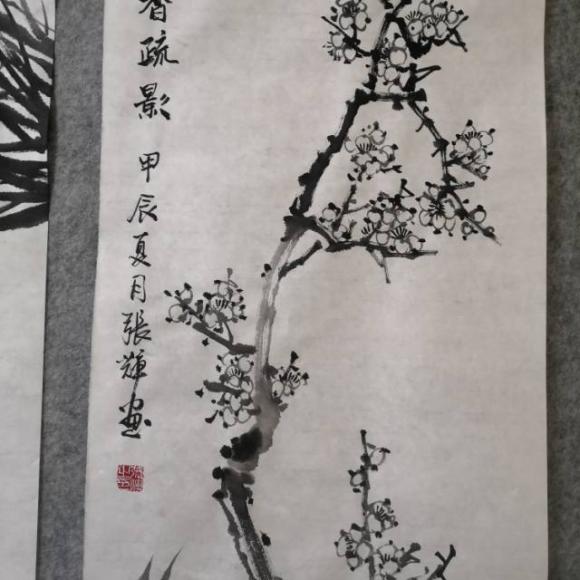 香疏影 甲辰夏月張輝画